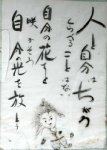 人と自分は ちがう
とらべることはない
自分の花を
咲かそう
自分の光を放とう